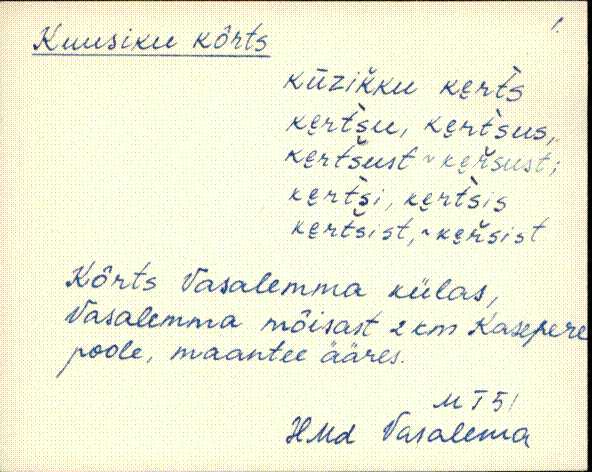 1.
Kuusiku kõrts
kūzikku ke̮rt̀s
ke̮rt̀su, ke̮rt̀sus,
ke̮rt̆sust ~ ke̮r̆sust;
ke̮rt̀si, ke̮rt̀sis
ke̮rt̆sist, ~ ke̮r̆sist
Kõrts Vasalemma külas,
Vasalemma mõisast 2 km Kasepere
poole, maantee ääres.
MT 51
HMd Vasalema